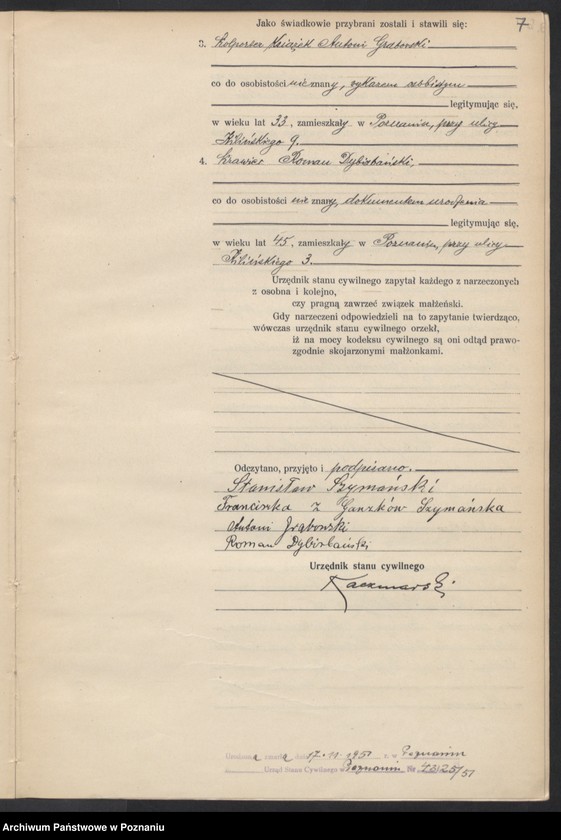 7
Jako świadkowie przybrani zostali i stawili się:
3. kolporter książek Antoni Grabowski
co do osobistości nieznany, wykazem osobistym
legitymując się,
w wieku lat 33, zamieszkały w Poznaniu, przy ulicy
Kilińskiego 9.
4. krawiec Roman Dybizbański,
co do osobistości nieznany, dokumentem urodzenia
legitymując się,
w wieku lat 45, zamieszkały w Poznaniu, przy ulicy
Kilińskiego 3.
Urzędnik stanu cywilnego zapytał każdego z narzeczonych
z osobna i kolejno,
czy pragną zawrzeć związek małżeński.
Gdy narzeczeni odpowiedzieli na to zapytanie twierdząco,
wówczas urzędnik stanu cywilnego orzekł,
iż na mocy kodeksu cywilnego są oni odtąd prawo-
zgodnie skojarzonymi małżonkami.
Odczytano, przyjęto i podpisano.
Stanisław Szymański
Franciszka z Szymańska
Antoni Grabowski
Roman Dybizbański
Urzędnik stanu cywilnego
Kaczmarski
zmarła dnia 17.11.1951 r. w Poznaniu
Urząd Stanu Cywilnego w Poznaniu Nr
Archiwum Państwowe w Poznaniu